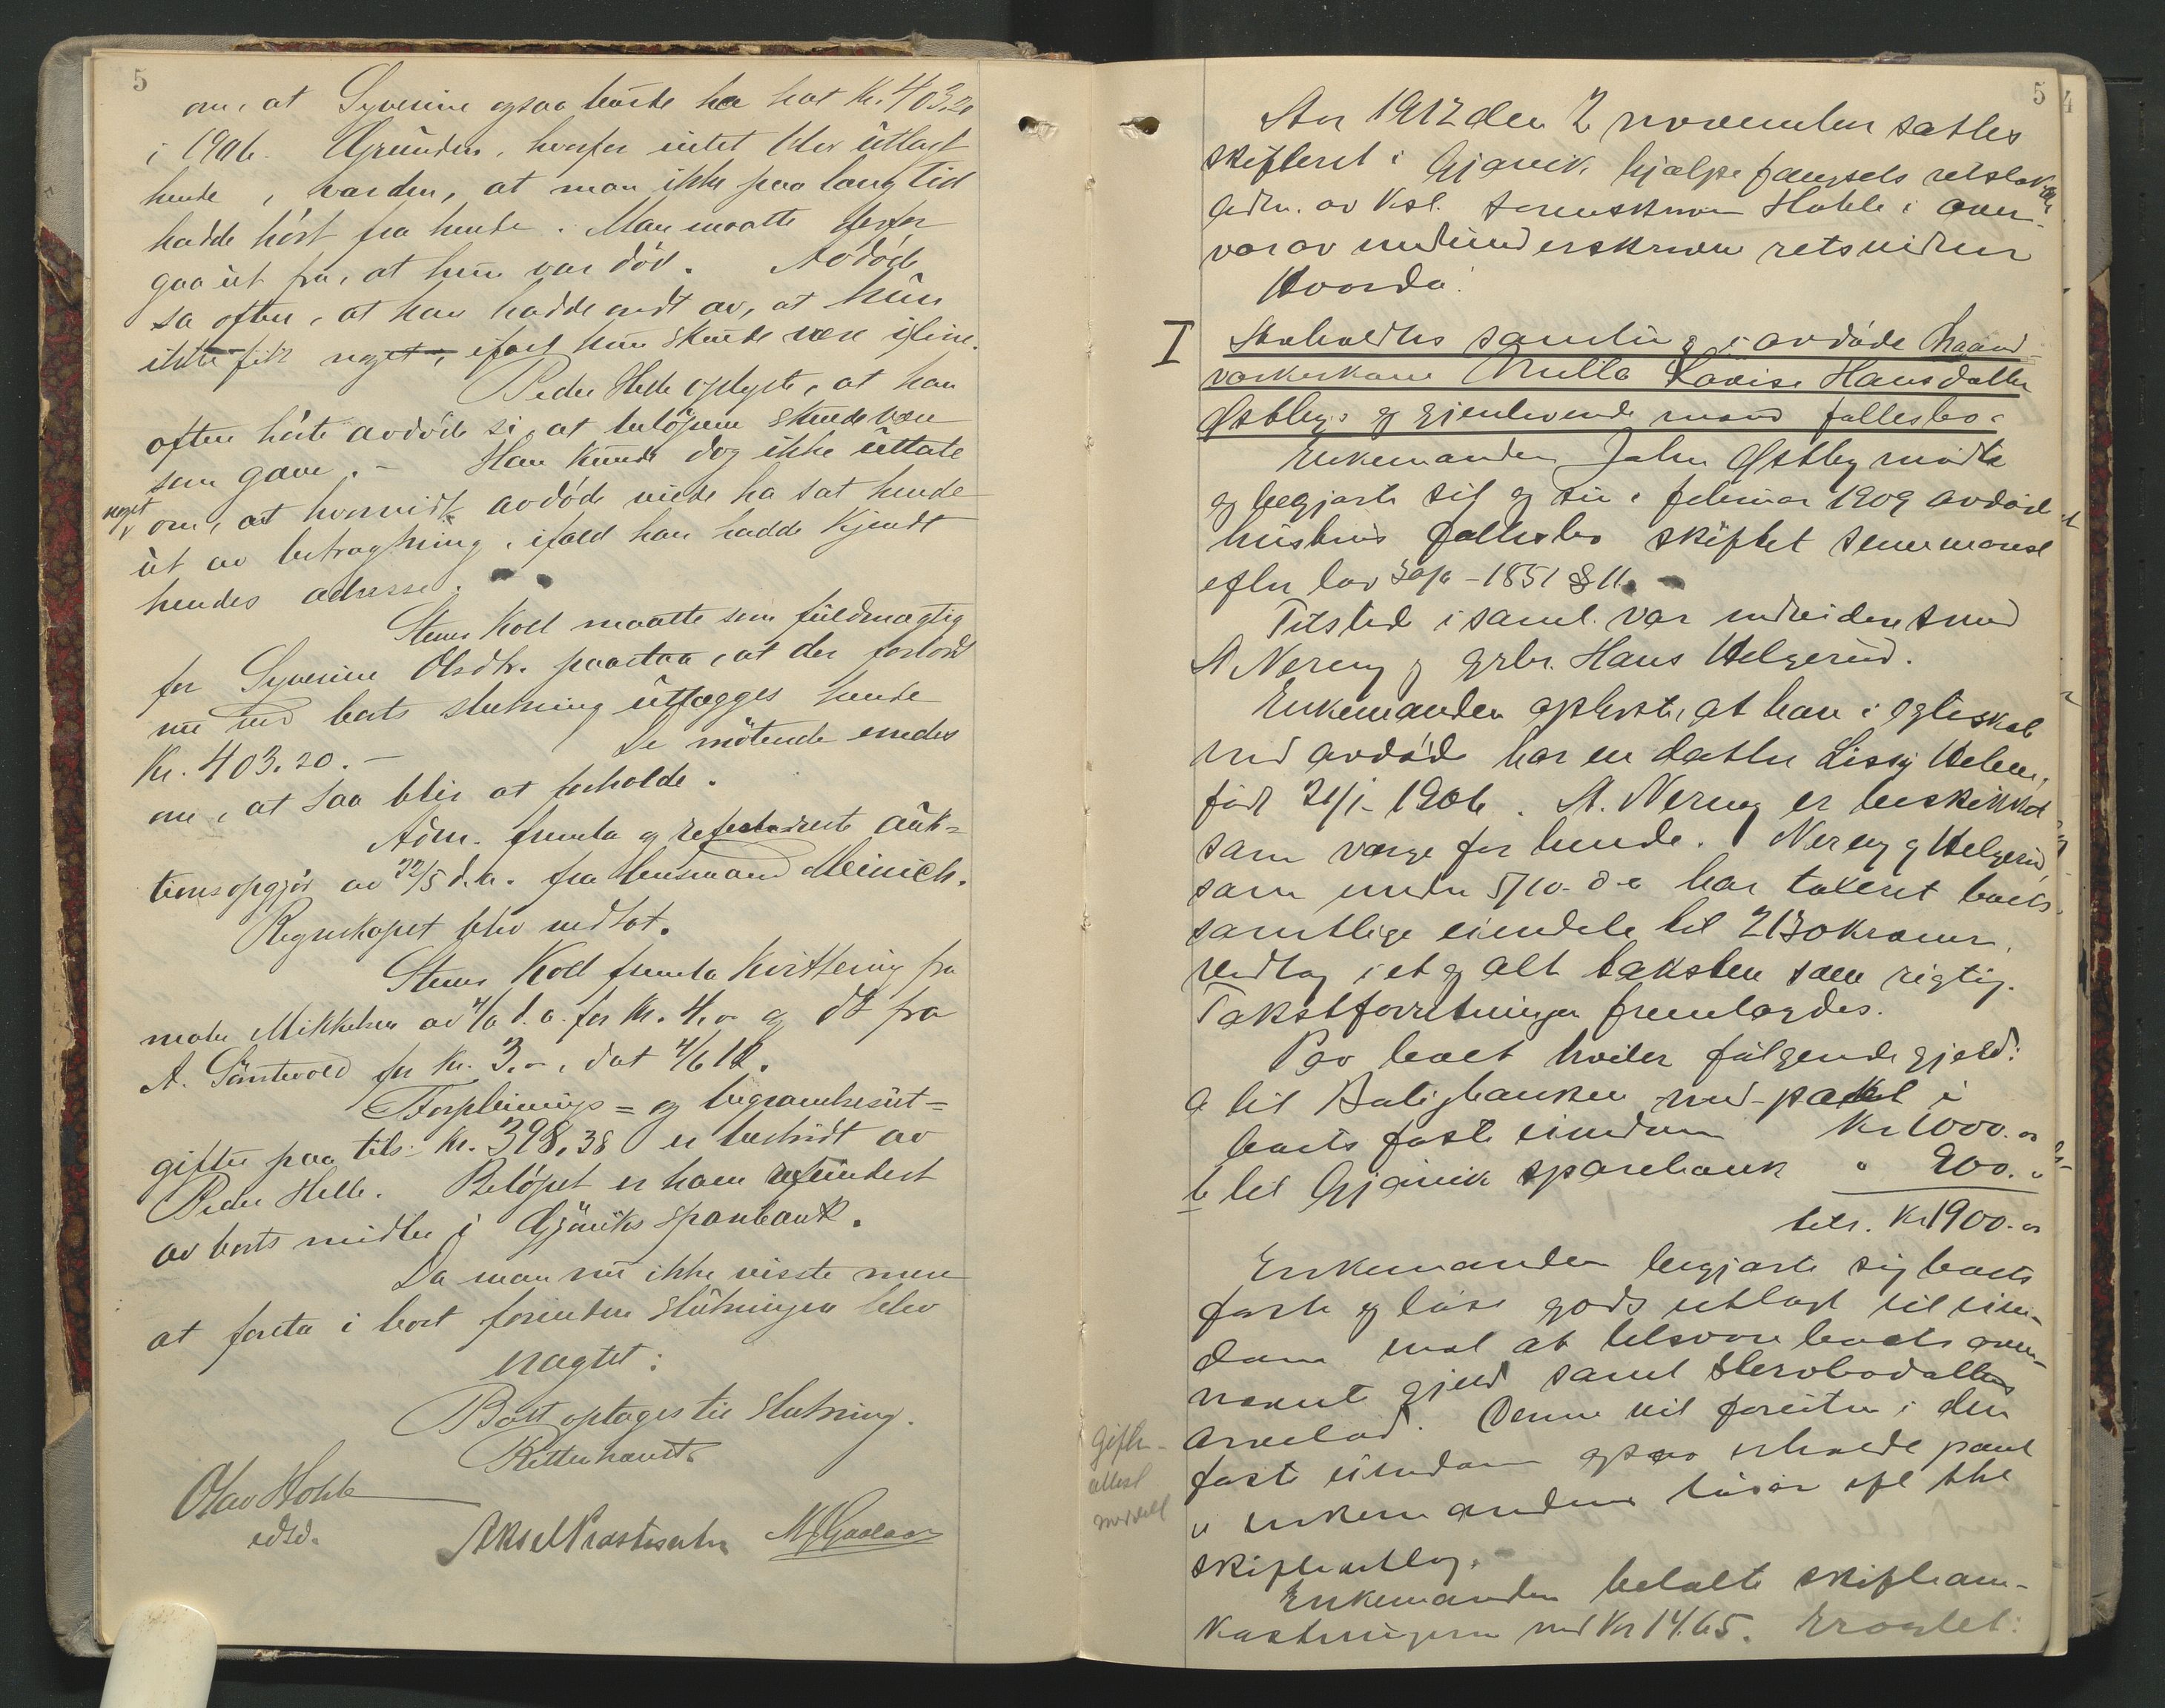 5
om, at Syverine ogsaa burde ha hat Kr. 403.20
i 1906. Grunden, hvorfor intet blev utlagt
hende, var den, at man ikke paa lang tid
hadde hört fra hende. Man maatte derfor
gaa ut fra, at hun var död. Avdöde
sa ofte, at han hadde ondt av, at hun
ikke fik noget, ifald hun skulde være ilive.
Peder Helle oplyste, at han
ofte hörte avdöde si, at belöpene skulde være
som gave. - Han kunde dog ikke uttale
noget
om, at hvorvidt avdöde vilde ha sat hende
ut av betragtning, ifald han hadde kjendt
hendes adresse.
Stener Koll maatte som fuldmægtig
for Syverine Olsdtr. paastaa, at der forlods
nu ved boets slutning utlægges hende
Kr. 403.20. -
De mötende enedes
om, at saa blir at forholde.
Adm. fremla og refererte auk-
tionsopgjör av 22/5 d.a. fra lensmand Meinich.
Regnskapet blev vedtat.
Stener Koll fremla kvittering fra
Mikkelsen av 4/6 d.a. for Kr. 4.00 og do fra
A. for Kr. 3.00, dat 4/6 12.
Forpleinings- og begravelsesut-
gifter paa tils. Kr. 398,38 er bestridt av
Peder Helle. Belöpet er ham refundert
av boets midler i Gjöviks Sparebank.
Da man nu ikke visste mere
at foreta i boet forinden slutningen blev
eragtet:
Boet optages til slutning.
Retten hævet.
Olav Hohle
edsv.
5
Aar 1912 den 2 november sattes
skifteret i Gjøvik hjælpefængsels retslokale
Adm. av Kst. sorenskriver Hohle i over-
vær av medunderskrevne retsvidner
Hvorda:
I
Avholdtes samling i avdøde haand-
verkerkone Milla Lovise Hansdatter
Østby's og gjenlevende mand fællesbo.
Enkemanden John Østby mødte
og begjærte sit og sin i februar 1909 avdøde
hustrus fællesbo skiftet
efter lov 30/7-1851 § 11.
Tilsted i saml. var
A Nereng og grbr. Hans Helgerud.
Enkemanden oplyste, at han i egteskab
med avdøde har en datter Lissy Helene,
født 21/1-1906. A. Nereng er beskikket
som verge for hende. Nereng og Helgerud,
som under 5/10-d.a har taxeret boets
samtlige eiendele til 2130 kroner,
vedtog i et og alt taksten som rigtig.
Takstforretningen fremlagdes.
Paa boet hviler følgende gjeld:
a til Boligbanken med pant i
boets faste eiendom Kr 1000.00
b til Gjøvik sparebank " 900. "
tils. Kr 1900.00
Enkemanden begjærte sig boets
faste og løse gods utlagt til eien-
dom mot at tilsvare boets oven-
nævnte gjeld samt sterbodatterens
arvelod. Denne vil foruten i den
faste eiendom ogsaa erholde pant
i enkemandens løsøre ifl. hht
skifteutlæg.
Enkemanden betalte skifteom-
kostningerne med Kr 14.65. Eragtet:
Gifte-
attest